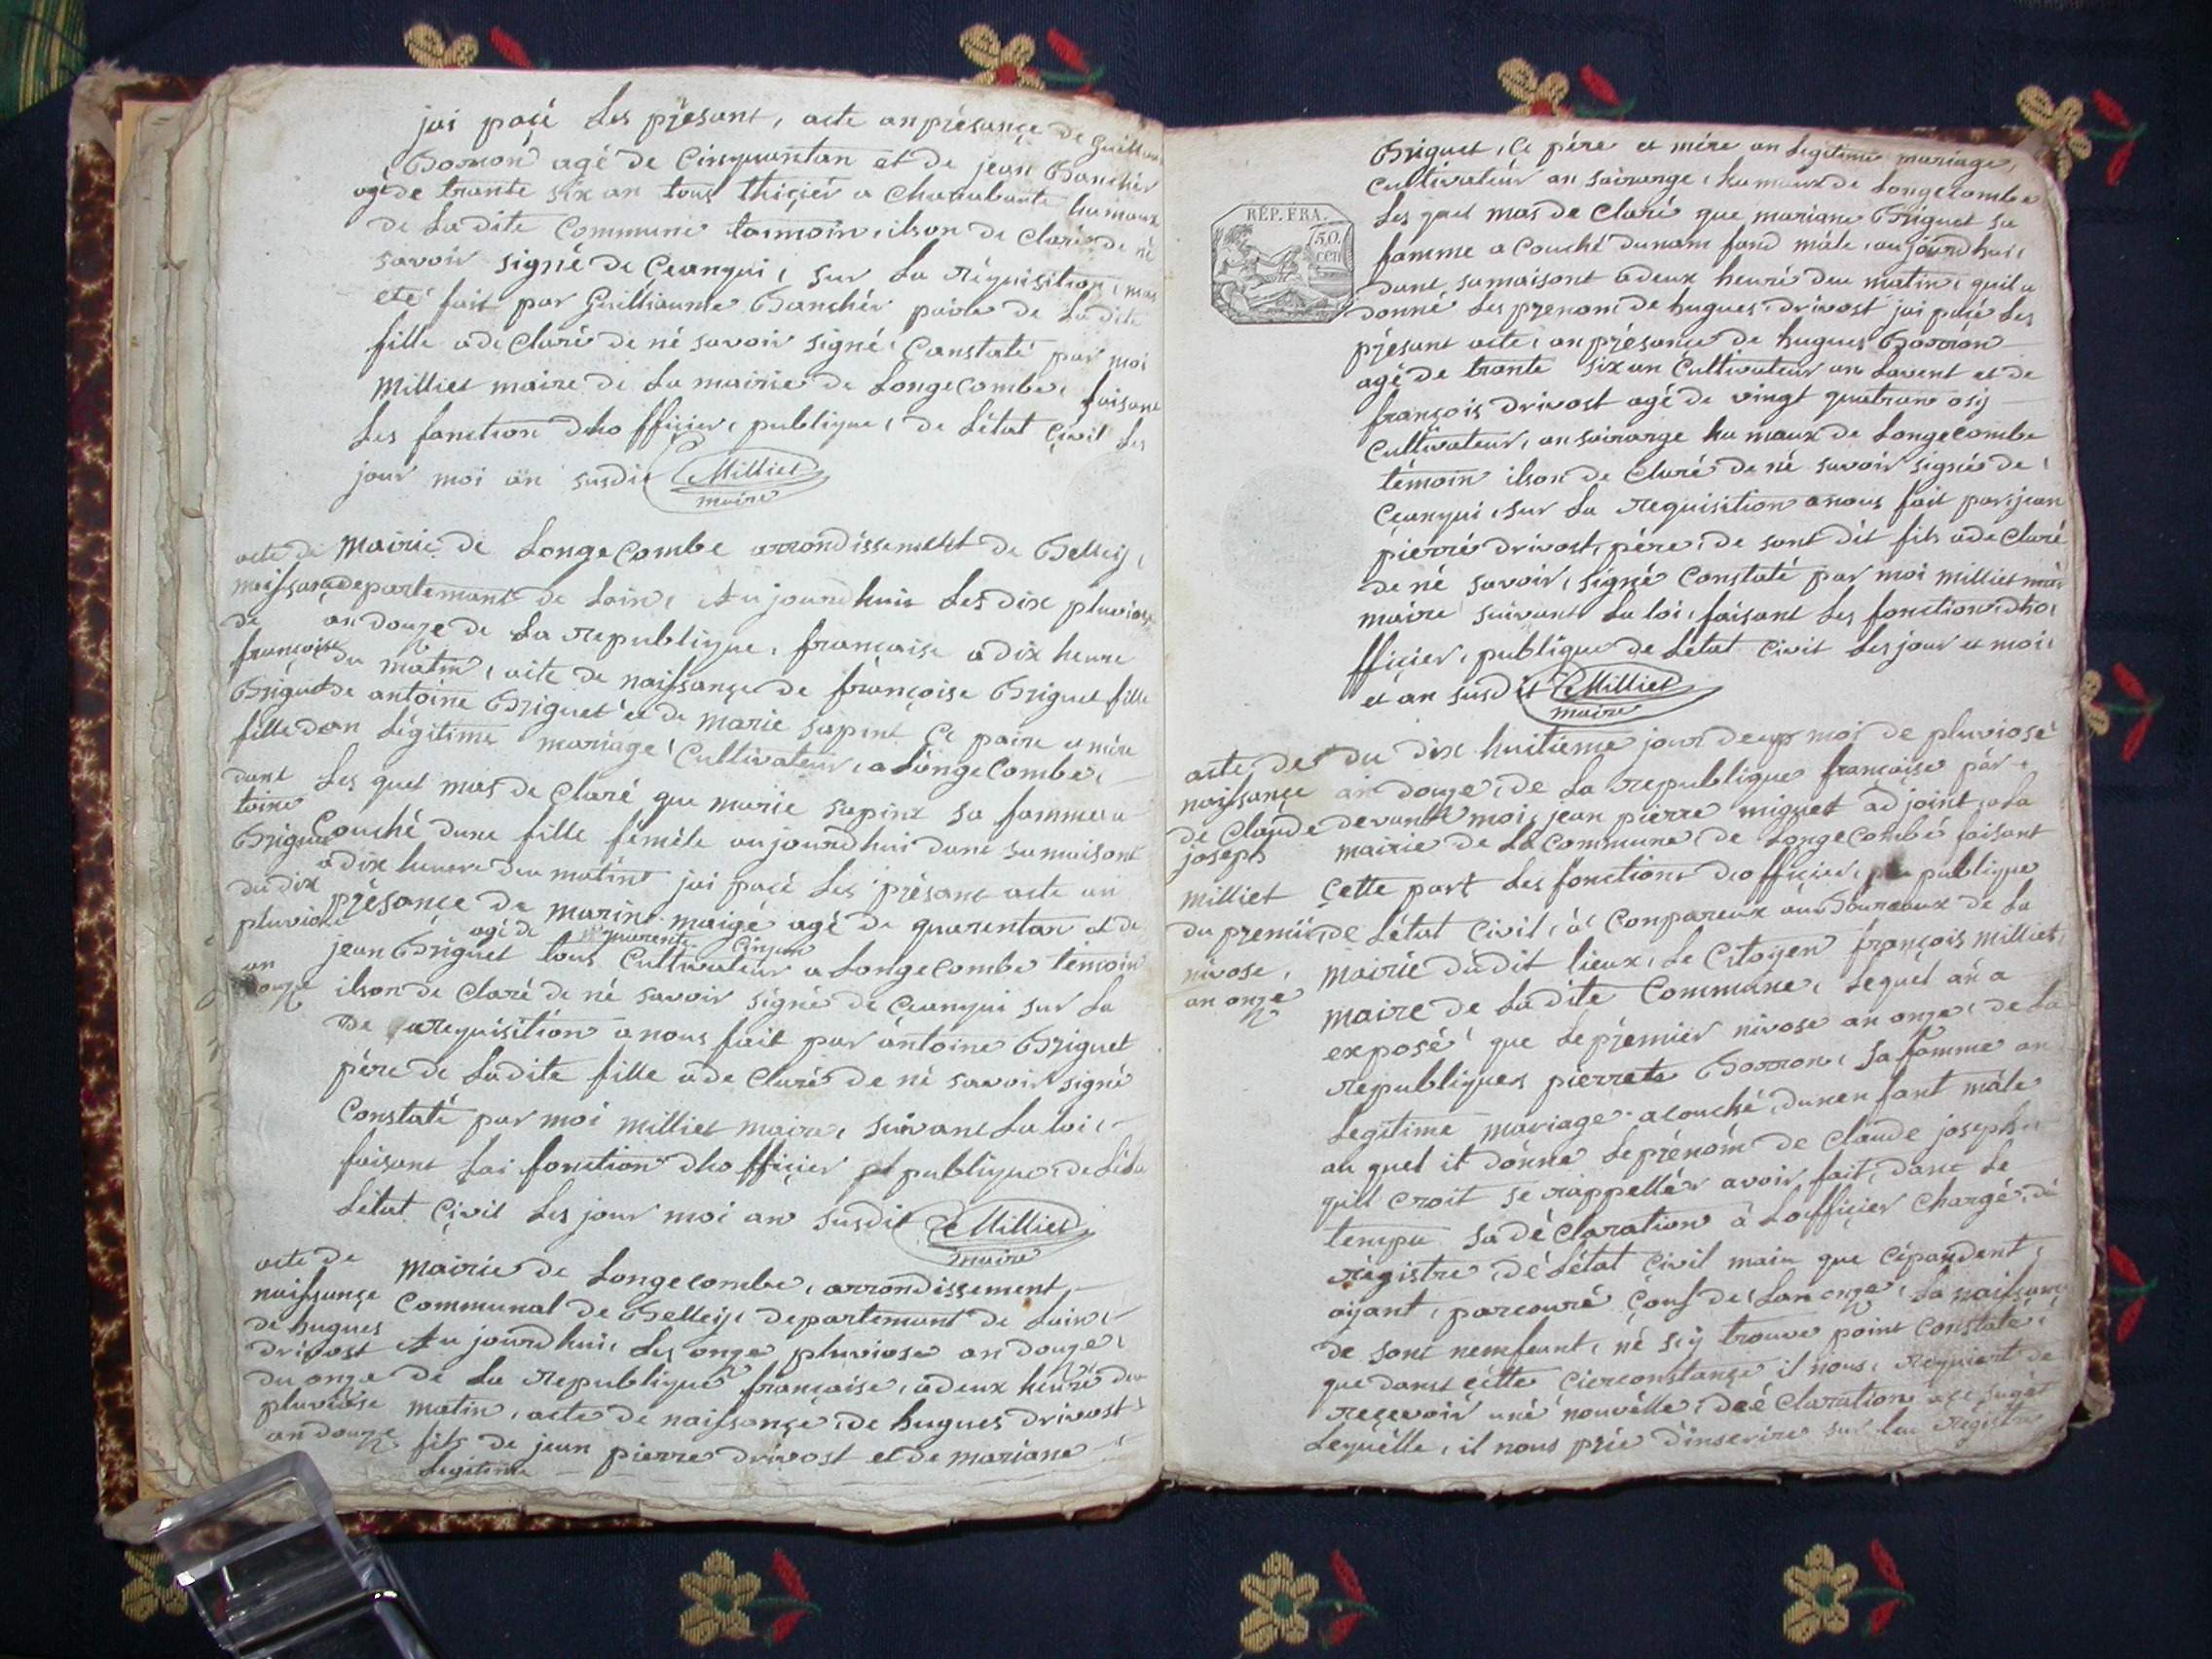 jai paçé les présant, acte anprésançe de Guillau
Borron agé de Cinquantan et de jean Banchér
agé de trante six an tous thiçiér a Charabante hamaux
de Ladite Commune temoin, ilson de Claré de né
savoir signé de Ceanqui, sur La réquisition,
eté fait par Guilliaume Banchér paire de Ladite
fille a de Claré de né savoir signé, Constaté par moi
Milliet maire de La mairie de Longecombe, faisant
Les fonction dho fficier, publique, de Létat Çivil Les
jour moi an susdit Milliet
maire
acte de
naissance
de
françoise
Briguet
fille dan
toine
Briguet
du dix
pluviose
an
douze
Mairie de Longe Combe arrondissement de Belleij,
departemant de Lain, Au jourdhuis Les dix pluviose
an douze de La republique, française a dix heure
du matin, acte de naissançe de françoise Briguet fille
de antoine Briguet et de marie sapint Ce paire et mére
an Légitime mariage, Cultivateur, a Longe Combe,
Les quel mas de Claré que marie sapint sa famme a
Couché dune fille feméle aujourdhui dans sa maisont
a dix heurre deu matin jai paçé Les présant acte an
présance de marin maigé agé de quarentan et de
agé de quarente Cinq an
jean Briguet tous Cultivateur a Longe Combe témoin
ilson de Claré de né savoir signé de Ceanqui sur La
De requisition a nous fait par antoine Briguet
pére de Ladite fille a de Claré de né savoir signé
Constaté par moi milliet maire, suivant La loi,
faisant Lai fonction dho fficier publique, de Léta
Létat Çivil Les jour moi an susdit Milliet
maire
acte de
naissançe
de hugues
drivost
du onze
pluviose
an douze
Mairie de Longecombe, arrondissement,
Communal de Belleij, departemant de Lain,
Au jourdhui, Les onze pluviose an douze,
de La republique française, a deux heure deu
matin, acte de naissançe, de hugues drivost
fils de jean pierre drivost et de mariane
Legitime
RÉP. FRA.
50.
cen
Briguet, Ce pére et mére an Legitime mariage,
Cultivateur an sairarge, hamaux de Longecombe
Les quel mas de Claré que mariane Briguet sa
famme a Couché dunam fand mâle, aujourdhui,
dans sa maisont a deux heure deu matin, quil a
donné Les prenom de hugues, drivost jai paçé Les
présant acte, an présance de hugues Borron
agé de trante six an Cultivateur an Lavent et de
françois drivost agé de vingt quatran osij
Cultivateur, an sairarge hamaux de Longecombe
témoin ilson de Claré de né savoir signé de,
Ceanqui, sur La requisition a nous fait par, jean
pierre drivost, pére, de sont dit fils a de Claré
de né savoir, signé Constaté par moi milliet
maire suivant La loi, faisant Les fonction, dho,
fficier, publique de Létat Civil Les jour et moi,
et an susdit Milliet
maire
acte de
naissançe
de Claude
joseph
milliet
du premiér
nivose,
an onze
du dix huitieme jour du moi de pluviosé
an douze, de La republique française pár
devant moi, jean pierre miguet adjoint, a La
mairie de La Commune, de Longecombé faisant
Çette part Les fonctions dofficier, publique
de Létat Civil, a Conpareux au Boureaux de La
mairié dudit lieux, Le Citoyen françois Milliet,
maire de Ladite Commune, Lequel an a
exposé, que Lepremier nivose an onze, de La
republiques pierrete Borron, sa famme an
Legitime mariage acouché, dunen fant mâle
au quel it donne Leprénom de Claude joseph
quil croit se rappellér avoir fait, dans Le
temps sa déclaration à Lofficier Chargé, du
régistre, dé Létat Çivil mais que Cépandent,
aijant, parcouré Çeuf de Lan onze, La naissance
de sont nemfeant, né sij trouve point constaté,
que danst cétte Cierconstançe il nous, requiert de
reçevoir uné nouvélle, déé Claration a ce sugét
Lequélle, il nous prie dinserire sur Les registre